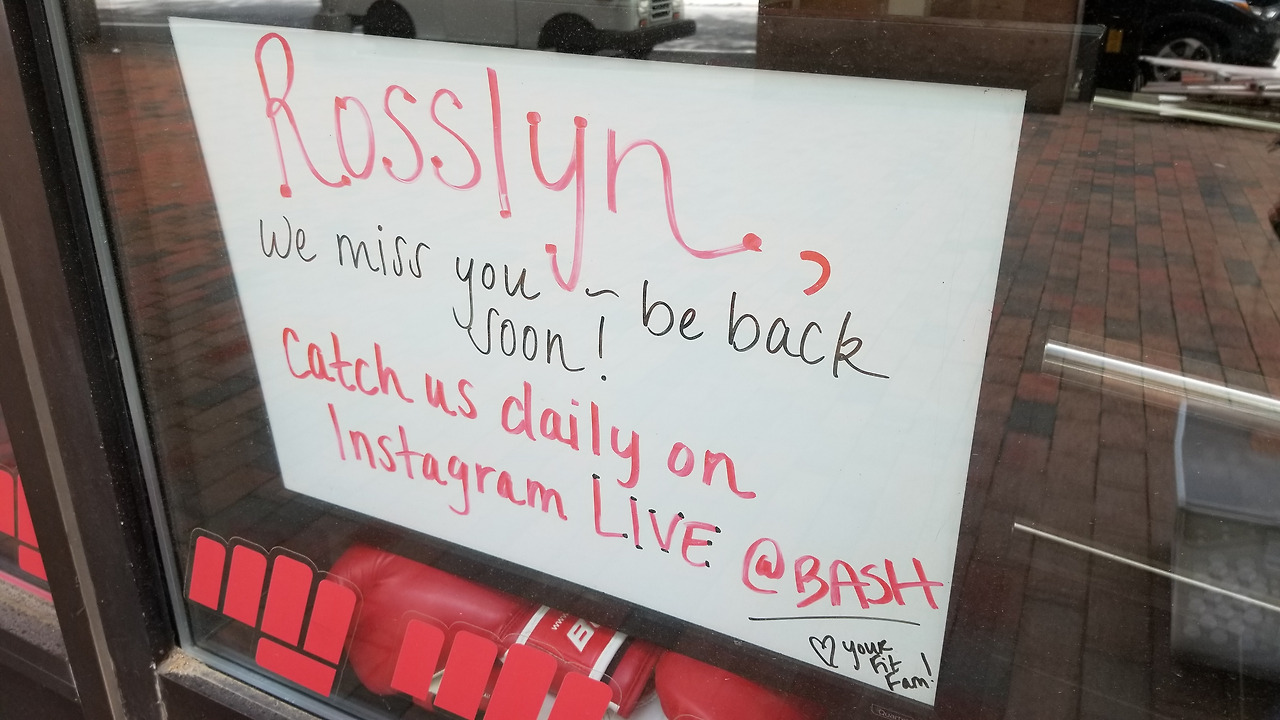 Rosslyn,
We miss you ~ be back
soon!
Catch us daily on
Instagram LIVE @BASH
♡ your
Fit
Fam!